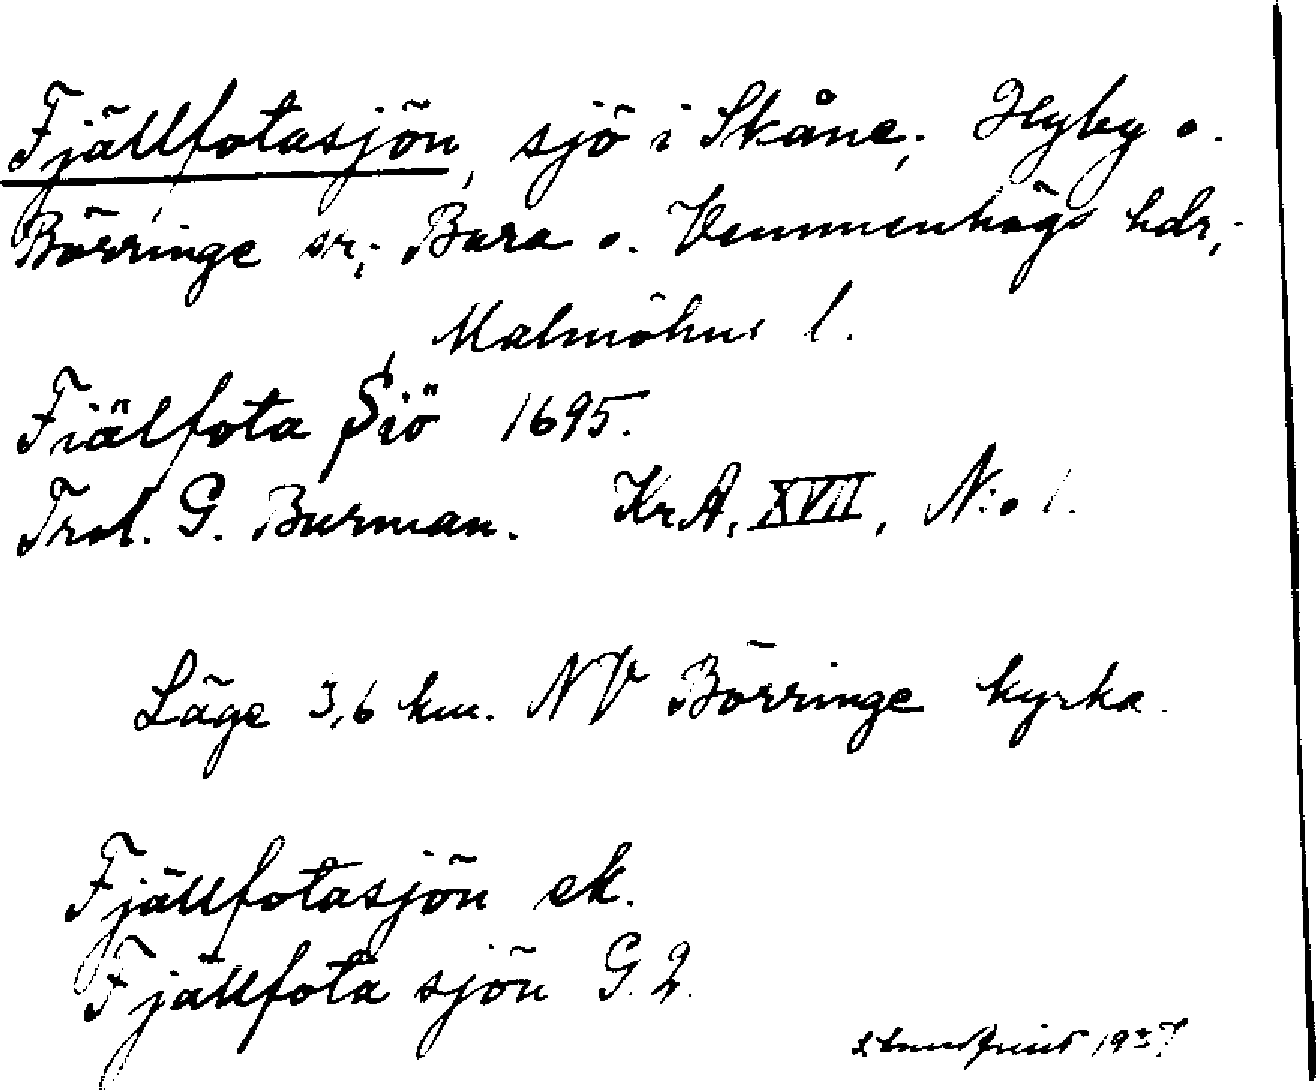 Fjällfotasjön, sjö i Skåne; Hyby o.
Börringe sr; Bara o. Vemmenhögs hdr,
Malmöhus l.
Fiälfota Siö 1695.
Trol. G. Burman. KrA, XVII, N:o 1.
Läge 3,6 km. NV Börringe kyrka.
Fjällfotasjön ek.
Fjällfota sjön G. 2.
1937